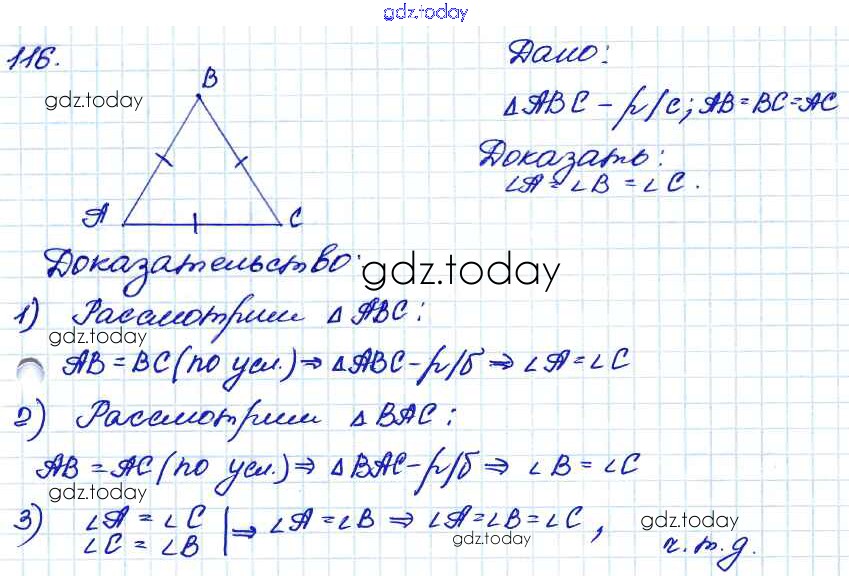 gdz.today
116.
B
gdz.today
A
C
Дано:
△ABC - р/с; AB = BC = AC
Доказать:
∠A = ∠B = ∠C.
Доказательство:
gdz.today
1) Рассмотрим △ABC:
gdz.today
AB = BC (по усл.) ⇒ △ABC - р/б ⇒ ∠A = ∠C
2) Рассмотрим △BAC:
AB = AC (по усл.) ⇒ △BAC - р/б ⇒ ∠B = ∠C
gdz.today
3) ∠A = ∠C
∠C = ∠B
⇒ ∠A = ∠B ⇒ ∠A = ∠B = ∠C,
gdz.today
gdz.today
ч.т.д.